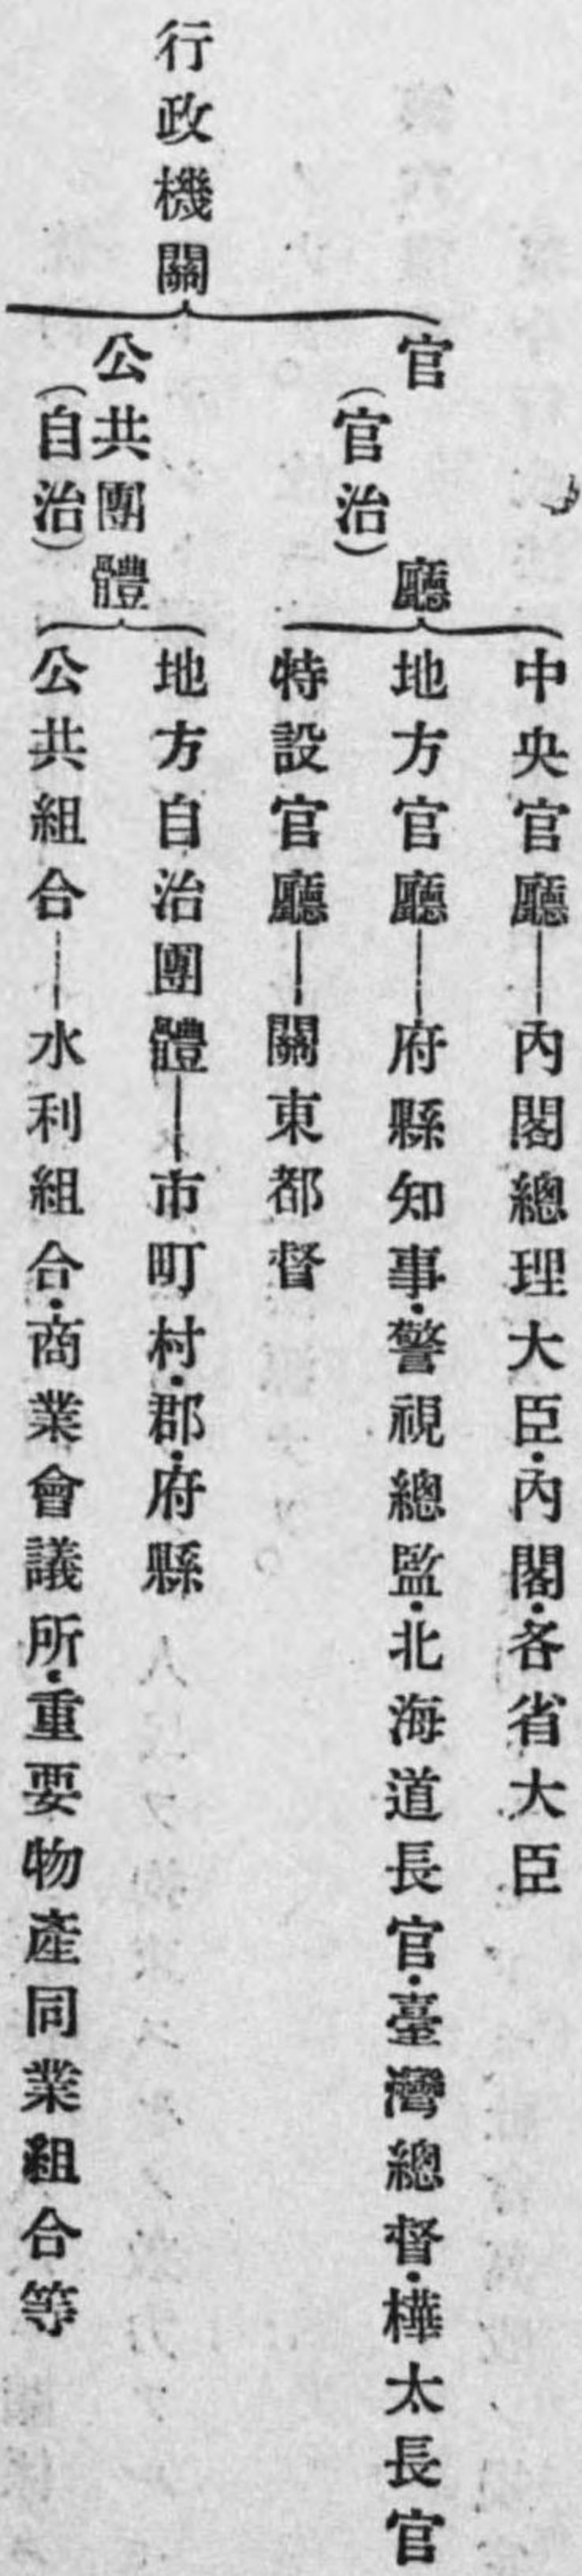 行政機關
官廳
(官治)
中央官廳―內閣總理大臣・內閣・各省大臣
地方官廳―府縣知事・警視總監・北海道長官・臺灣總督・樺太長官
特設官廳―關東都督
公共團體
(自治)
地方自治團體―市町村・郡・府縣
公共組合―水利組合・商業會議所・重要物產同業組合等